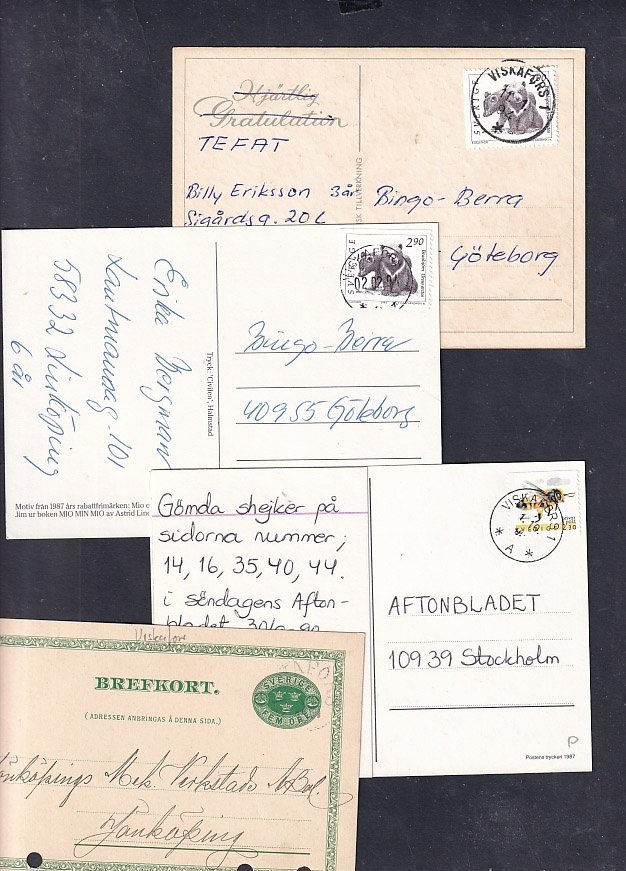 Hjärtlig
Gratulation
TEFAT
Billy Eriksson 3år
Sigårdsg. 20 C
SK TILLVERKNING
Bingo-Berra
Göteborg
SVERIGE
VISKAFORS 1
Erika Bergman
58332 Linköping
6 år
Tryck: "Civilen", Halmstad
SVERIGE
2.90
02.02.9
Bingo-Berra
40955 Göteborg
Motiv från 1987 års rabattfrimärken: Mio o
Jim ur boken MIO MIN MIO av Astrid Lind
Gömda shejker på
sidorna nummer;
14, 16, 35, 40, 44.
i söndagens Afton-
bladet 30/9-90
VISKAFORS 1
A
SVERIGE 2.30
AFTONBLADET
109 39 Stockholm
P
Postens tryckeri 1987
Viskafors
BREFKORT.
(ADRESSEN ANBRINGAS Å DENNA SIDA.)
SVERIGE
FEM ÖRE
Jönköpings Mek. Verkstads A.Bol.
Jönköping